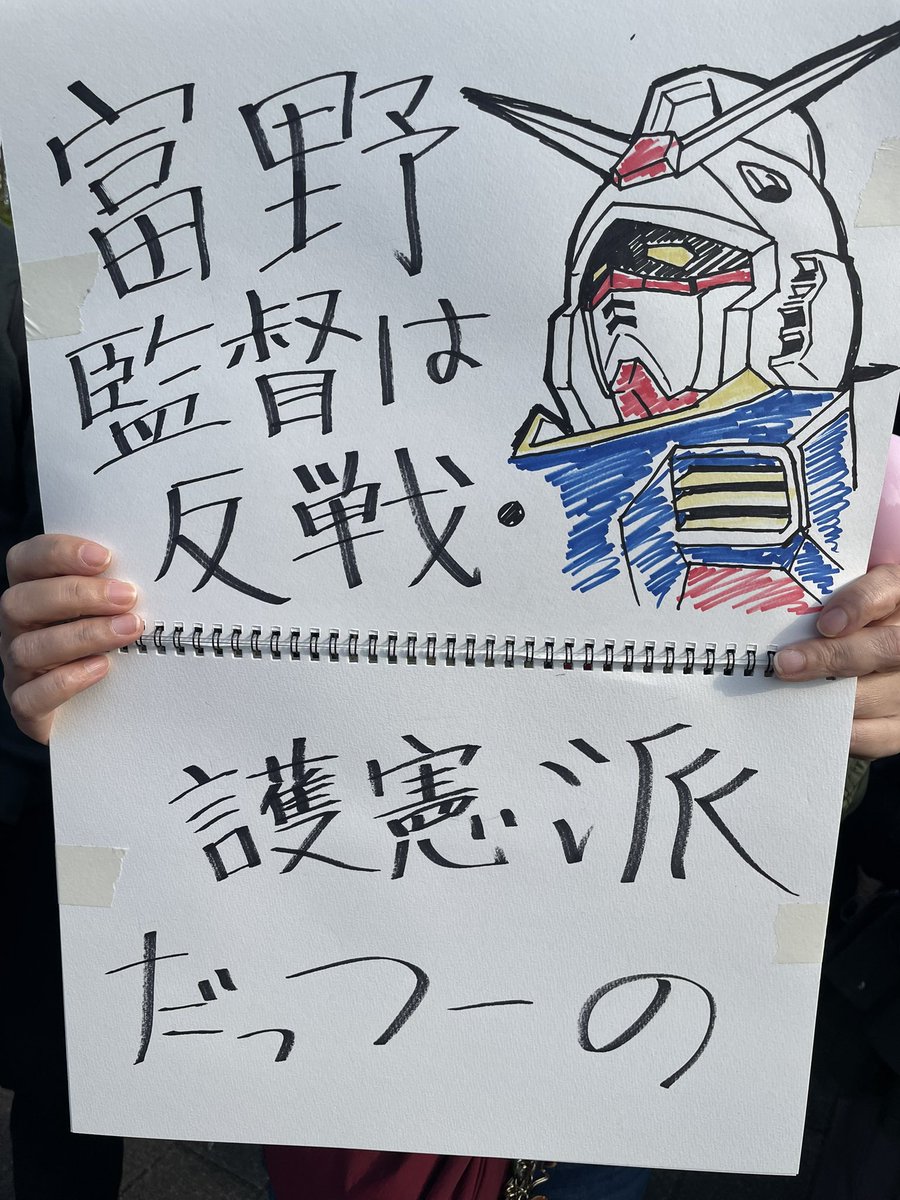 富野
監督は
反戦・
護憲派
だっつーの